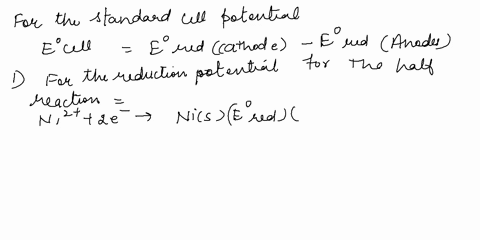 For the standard cell potential
E°cell = E°red (cathode) - E°red (Anode)
1) For the reduction potential for the half
reaction =
Ni²⁺ + 2e⁻ → Ni(s) (E°red) (